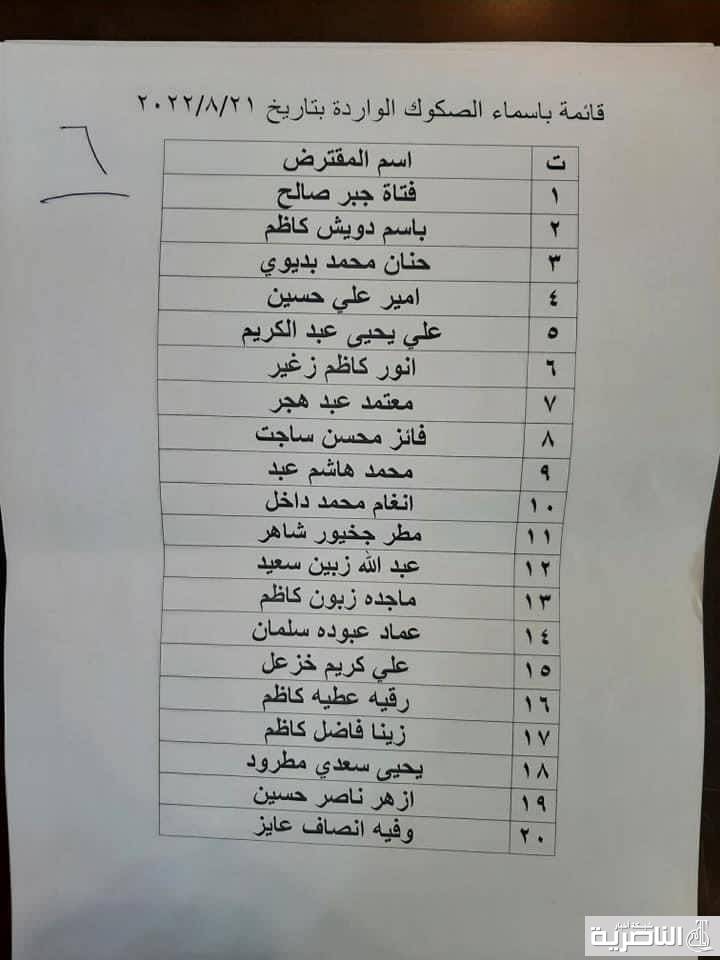 قائمة باسماء الصكوك الواردة بتاريخ ٢٠٢٢/٨/٢١
٦
ت اسم المقترض
١ فتاة جبر صالح
٢ باسم دويش كاظم
٣ حنان محمد بديوي
٤ امير علي حسين
٥ علي يحيى عبد الكريم
٦ انور كاظم زغير
٧ معتمد عبد هجر
٨ فائز محسن ساجت
٩ محمد هاشم عبد
١٠ انغام محمد داخل
١١ مطر جخيور شاهر
١٢ عبد الله زبين سعيد
١٣ ماجده زبون كاظم
١٤ عماد عبوده سلمان
١٥ علي كريم خزعل
١٦ رقيه عطيه كاظم
١٧ زينا فاضل كاظم
١٨ يحيى سعدي مطرود
١٩ ازهر ناصر حسين
٢٠ وفيه انصاف عايز
شبكة اخبار
الناصرية